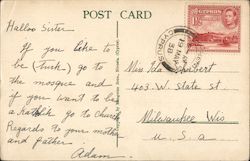 POST CARD
Halloo Sister
If you like to
be (Turk) go to
the mosque and
if you want to be
a Katholik go to Church
Regards to your mother
and father
Adam.
CYPRUS
Miss Ida
403 W. State St
Milwaukee Wis
USA